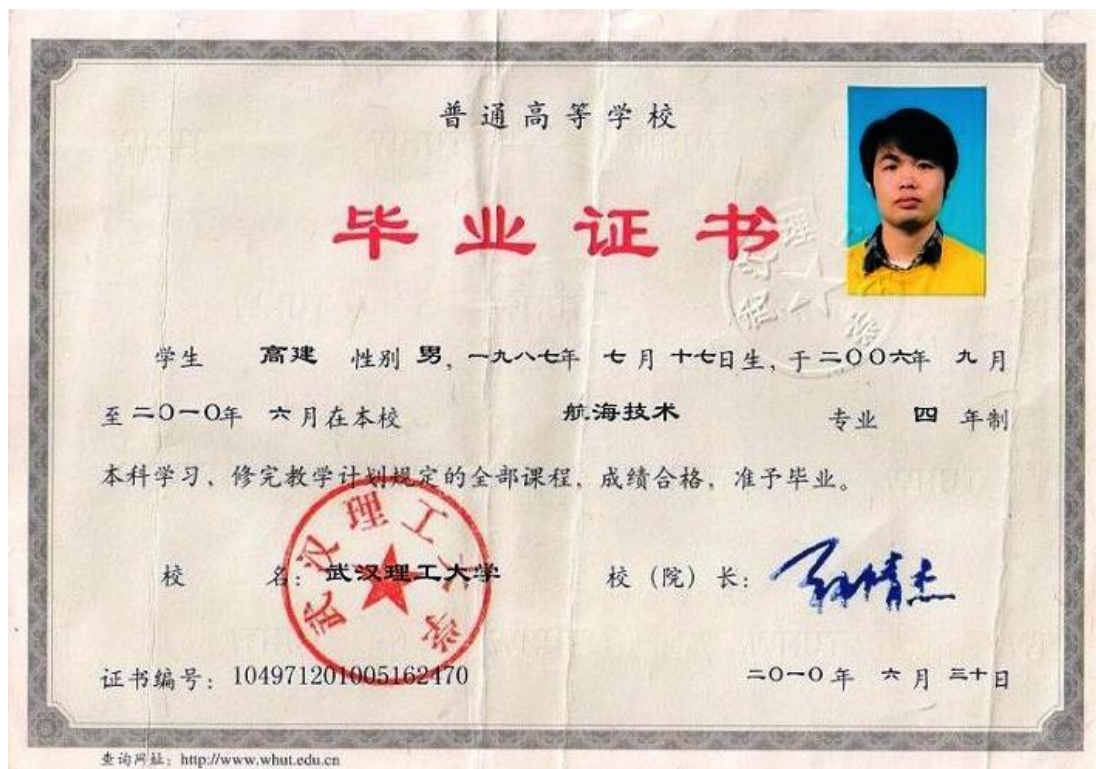 普通高等学校
毕业证书
学生 高建 性别 男，一九八七年 七月 十七日生，于二〇〇六年 九月
至二〇一〇年 六月在本校 航海技术 专业 四 年制
本科学习，修完教学计划规定的全部课程，成绩合格，准予毕业。
校 名：武汉理工大学 校（院）长：
武汉理工大学
证书编号：104971201005162470 二〇一〇年 六月 三十日
查询网址：http://www.whut.edu.cn